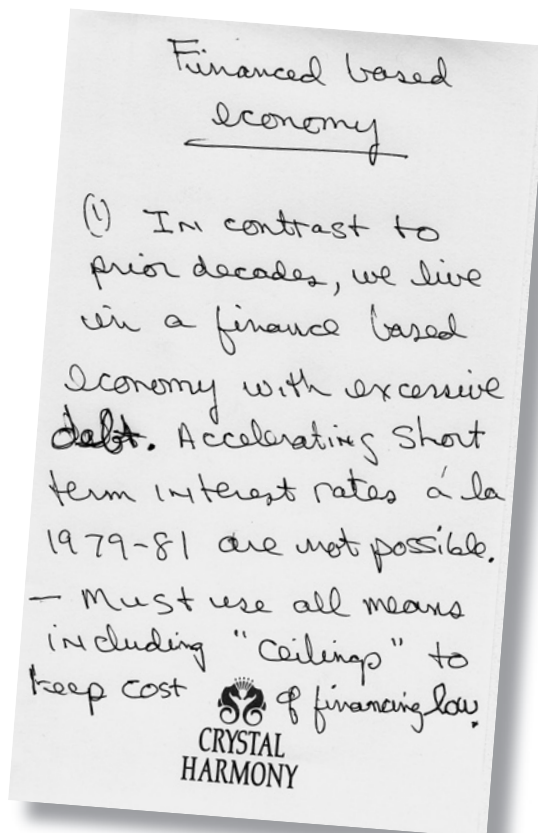 Financed based
economy
(1) In contrast to
prior decades, we live
in a finance based
economy with excessive
debt. Accelerating short
term interest rates á la
1979-81 are not possible.
- Must use all means
including "ceilings" to
keep cost of financing low.
CRYSTAL
HARMONY